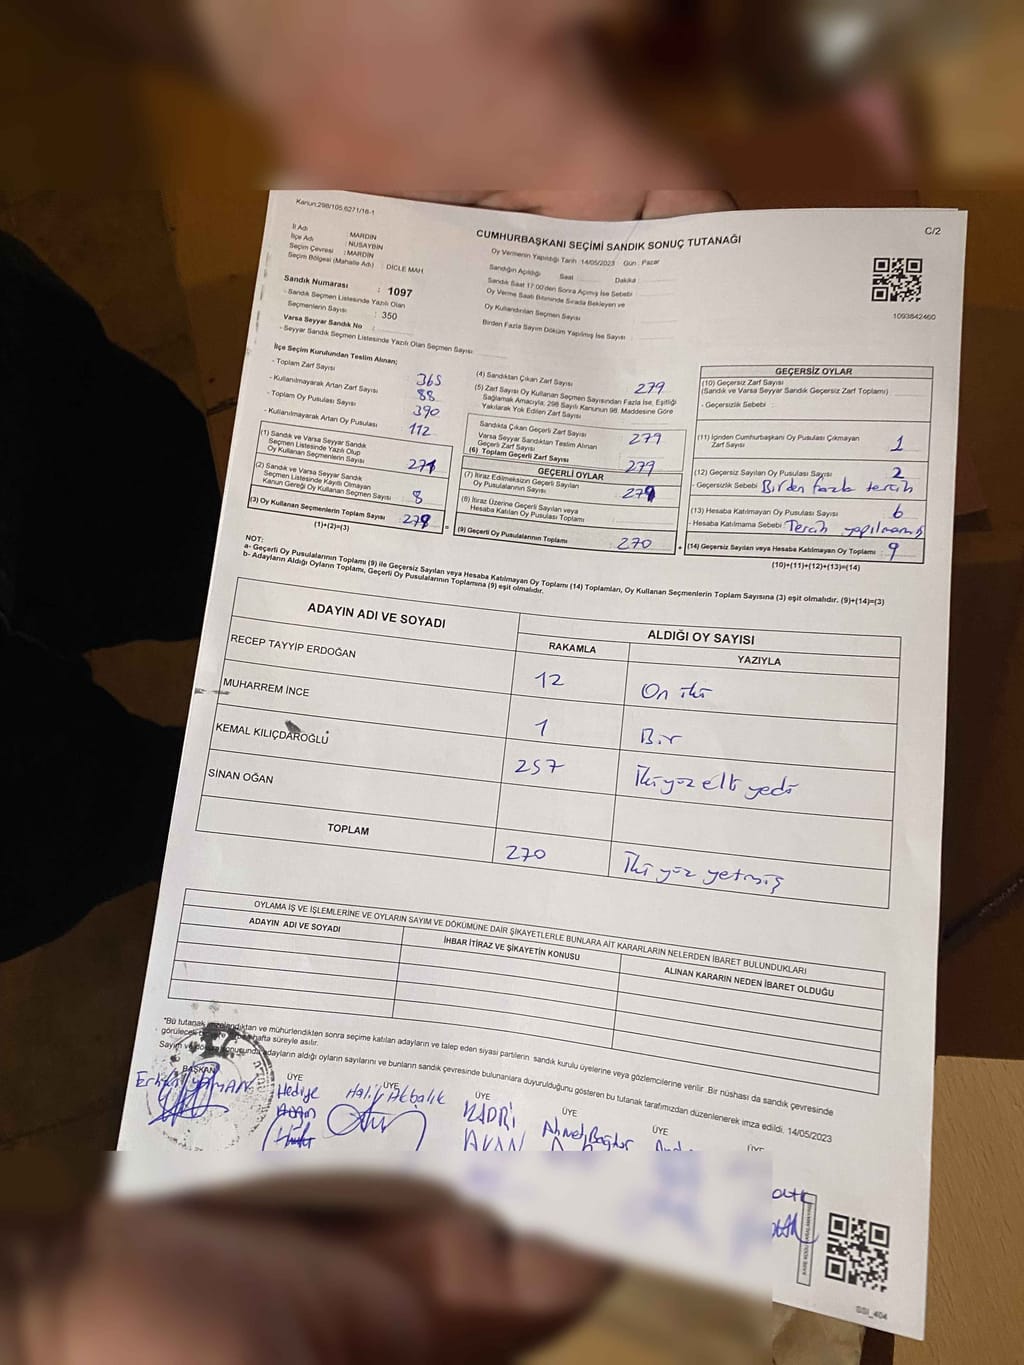 Kanun:298/105,6271/16-1
C/2
CUMHURBAŞKANI SEÇİMİ SANDIK SONUÇ TUTANAĞI
İl Adı : MARDİN
İlçe Adı : NUSAYBİN
Seçim Çevresi : MARDİN
Seçim Bölgesi (Mahalle Adı) : DİCLE MAH
Sandık Numarası : 1097
- Sandık Seçmen Listesinde Yazılı Olan
Seçmenlerin Sayısı : 350
Varsa Seyyar Sandık No :
- Seyyar Sandık Seçmen Listesinde Yazılı Olan Seçmen Sayısı :
Oy Vermenin Yapıldığı Tarih :14/05/2023 Gün : Pazar
Sandığın Açıldığı Saat Dakika
Sandık Saat 17:00'den Sonra Açımış İse Sebebi
Oy Verme Saati Bitiminde Sırada Bekleyen ve
Oy Kullandırılan Seçmen Sayısı
Birden Fazla Sayım Döküm Yapılmış İse Sayısı :
1093842460
İlçe Seçim Kurulundan Teslim Alınan;
- Toplam Zarf Sayısı 365
- Kullanılmayarak Artan Zarf Sayısı 88
- Toplam Oy Pusulası Sayısı 390
- Kullanılmayarak Artan Oy Pusulası 112
(1) Sandık ve Varsa Seyyar Sandık
Seçmen Listesinde Yazılı Olup
Oy Kullanan Seçmenlerin Sayısı 271
(2) Sandık ve Varsa Seyyar Sandık
Seçmen Listesinde Kayıtlı Olmayan
Kanun Gereği Oy Kullanan Seçmen Sayısı 8
(3) Oy Kullanan Seçmenlerin Toplam Sayısı 279
(1)+(2)=(3)
(4) Sandıktan Çıkan Zarf Sayısı 279
(5) Zarf Sayısı Oy Kullanan Seçmen Sayısından Fazla İse, Eşitliği
Sağlamak Amacıyla; 298 Sayılı Kanunun 98. Maddesine Göre
Yakılarak Yok Edilen Zarf Sayısı
Sandıkta Çıkan Geçerli Zarf Sayısı 279
Varsa Seyyar Sandıktan Teslim Alınan
Geçerli Zarf Sayısı
(6) Toplam Geçerli Zarf Sayısı 279
GEÇERLİ OYLAR
(7) İtiraz Edilmeksizin Geçerli Sayılan
Oy Pusulalarının Sayısı 279
(8) İtiraz Üzerine Geçerli Sayılan veya
Hesaba Katılan Oy Pusulası Toplamı
(9) Geçerli Oy Pusulalarının Toplamı : 270
GEÇERSİZ OYLAR
(10) Geçersiz Zarf Sayısı
(Sandık ve Varsa Seyyar Sandık Geçersiz Zarf Toplamı)
- Geçersizlik Sebebi :
(11) İçinden Cumhurbaşkanı Oy Pusulası Çıkmayan
Zarf Sayısı 1
(12) Geçersiz Sayılan Oy Pusulası Sayısı 2
- Geçersizlik Sebebi Birden fazla tercih
(13) Hesaba Katılmayan Oy Pusulası Sayısı 6
- Hesaba Katılmama Sebebi Tercih yapılmamış
(14) Geçersiz Sayılan veya Hesaba Katılmayan Oy Toplamı : 9
(10)+(11)+(12)+(13)=(14)
NOT:
a- Geçerli Oy Pusulalarının Toplamı (9) ile Geçersiz Sayılan veya Hesaba Katılmayan Oy Toplamı (14) Toplamları, Oy Kullanan Seçmenlerin Toplam Sayısına (3) eşit olmalıdır. (9)+(14)=(3)
b- Adayların Aldığı Oyların Toplamı, Geçerli Oy Pusulalarının Toplamına (9) eşit olmalıdır.
ADAYIN ADI VE SOYADI
ALDIĞI OY SAYISI
RAKAMLA YAZIYLA
RECEP TAYYİP ERDOĞAN 12 On iki
MUHARREM İNCE 1 Bir
KEMAL KILIÇDAROĞLU 257 İki yüz elli yedi
SİNAN OĞAN
TOPLAM 270 İki yüz yetmiş
OYLAMA İŞ VE İŞLEMLERİNE VE OYLARIN SAYIM VE DÖKÜMÜNE DAİR ŞİKAYETLERLE BUNLARA AİT KARARLARIN NELERDEN İBARET BULUNDUKLARI
ADAYIN ADI VE SOYADI İHBAR İTİRAZ VE ŞİKAYETİN KONUSU ALINAN KARARIN NEDEN İBARET OLDUĞU
"Bu tutanak ve mühürlendikten sonra seçime katılan adayların ve talep eden siyasi partilerin sandık kurulu üyelerine veya gözlemcilerine verilir. Bir nüshası da sandık çevresinde
görülecek hafta süreyle asılır.
Sayım ve döküm konusunda adayların aldığı oyların sayılarını ve bunların sandık çevresinde bulunanlara duyurulduğunu gösteren bu tutanak tarafımızdan düzenlenerek imza edildi. 14/05/2023
BAŞKAN ÜYE ÜYE ÜYE ÜYE ÜYE ÜYE
Hediye Halil Akbalık KADRİ Ahmet Bağdur
SSİ_404